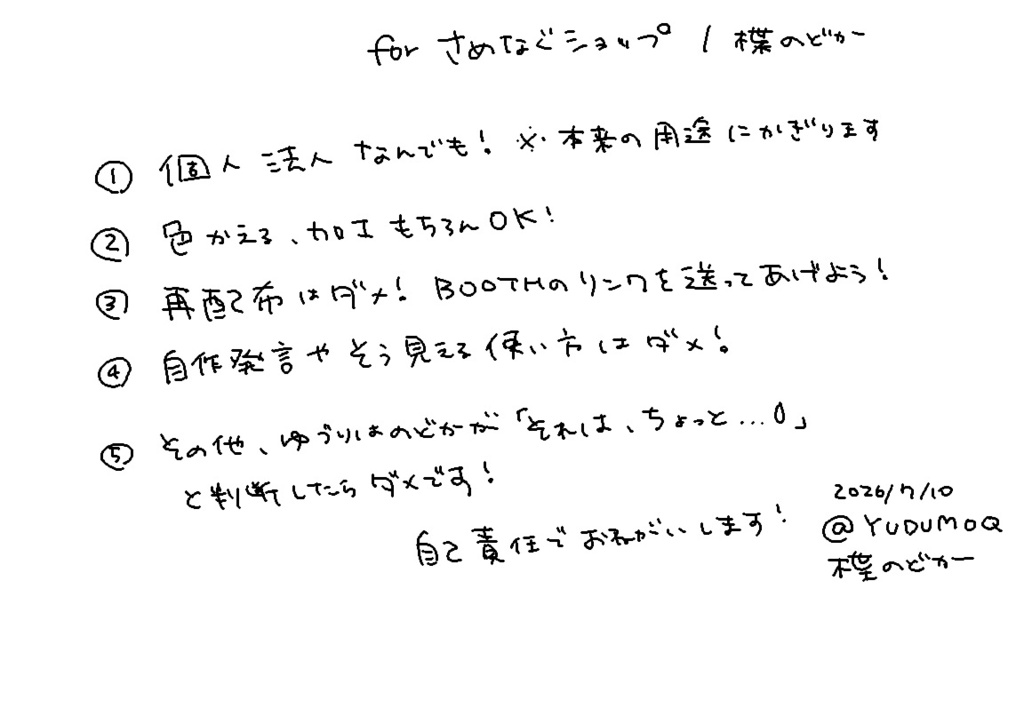 for さめなぐショップ / 楪のどかー
① 個人 法人 なんでも! ※本来の用途にかぎります
② 色かえる、加工もちろんOK!
③ 再配布はダメ! BOOTHのリンクを送ってあげよう!
④ 自作発言やそう見える使い方はダメ!
⑤ その他、ゆづりはのどかーが「それは、ちょっと...0」
と判断したらダメです!
自己責任でおねがいします!
2026/7/10
@YUDUMOQ
楪のどかー